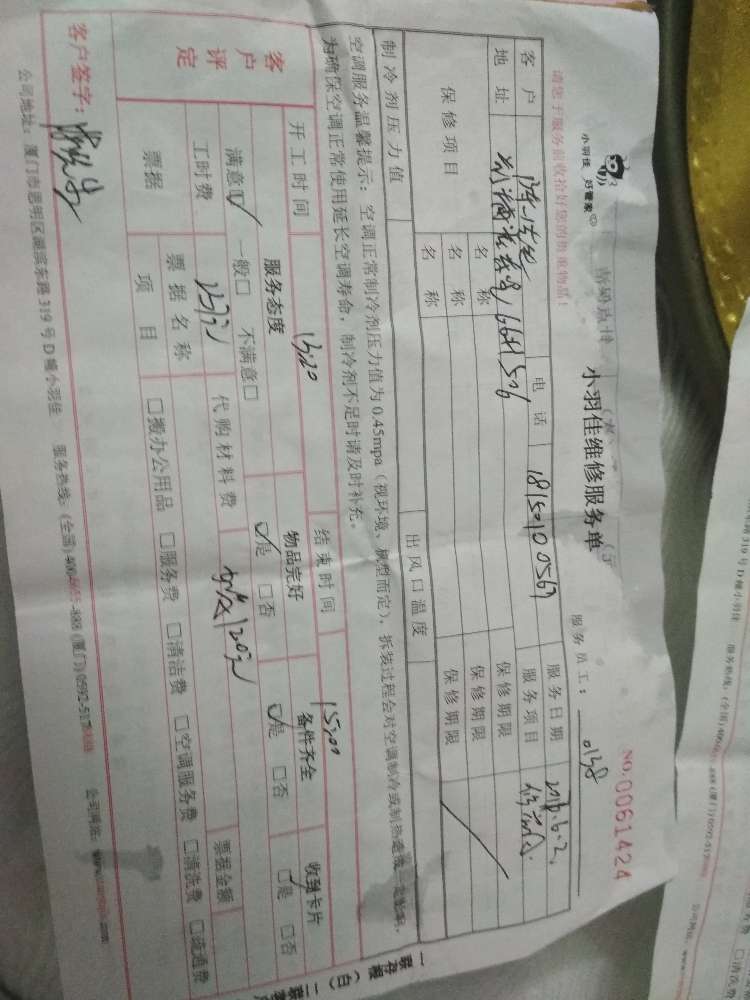 小羽佳 好管家
小羽佳维修服务单
NO.0061424
请您于服务前收拾好您的贵重物品！
服务员工： 0138
客户
电话 18150100567
服务日期 2018.6.2
地址
服务项目
保修项目
名称 保修期限
名称 保修期限
名称 保修期限
制冷剂压力值 出风口温度
空调服务温馨提示：空调正常制冷剂压力值为0.45mpa（视环境、机型而定），拆装过程会对空调制冷或制热造成一定影响，
为确保空调正常使用延长空调寿命，制冷剂不足时请及时补充。
开工时间 13:20 结束时间 15:00
客户评定
服务态度 物品完好 备件齐全 收到卡片
满意☑ 一般□ 不满意□ ☑是 □否 ☑是 □否 ☑是 □否
工时费 代购材料费 120元 票据金额
票据 票据名称
项目 □搬办公用品 □服务费 □清洁费 □空调服务费 □清洗费 □疏通费
客户签字：
公司地址：厦门市思明区湖滨东路319号D幢小羽佳 服务热线：(全国)400 (厦门)0592 公司网址：www. .com
一联存根（白）二联
319号D幢小羽佳 服务热线：(全国) (厦门)0592 公司网址：www.
□清洗费